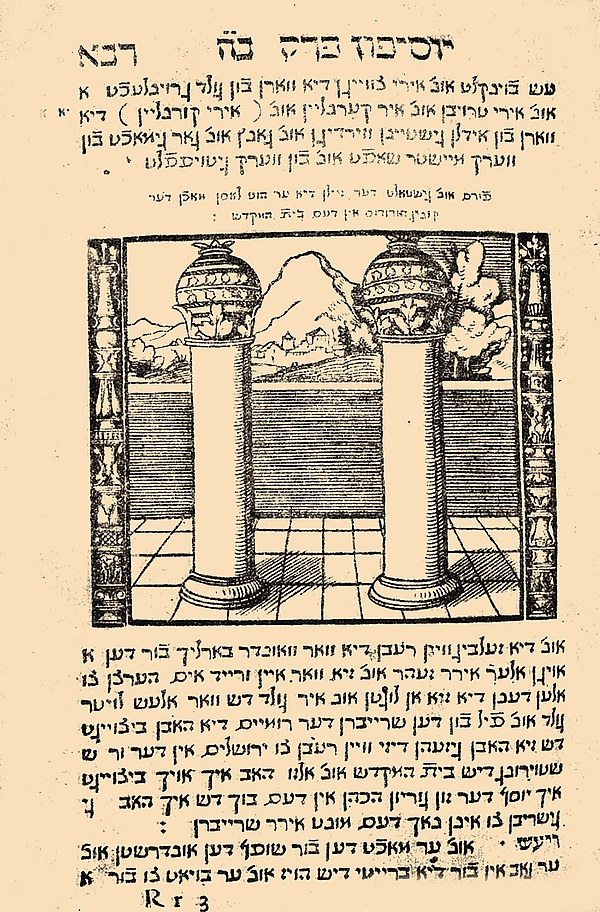 יוסיפון פרק כ״ה רכא
עש אונ׳ אירי צווייגן דיא ווארן בֿון גולד א
אונ׳ אירי טרויבן אונ׳ איר קערנליין אונ׳ ( אירי קורנליין ) דיא
ווארן בֿון אידלן גישטיינן אונ׳ גאנץ אונ׳ גאר גימאכֿט בֿון
ווערק מיישטר שאפֿט אונ׳ בֿון ווערק
פֿורם אונ׳ גישטאלט דער זיילן דיא ער הוט לאסן מאכֿן דער
קוניג הורודוס אין דעס בית המקדש :
אונ׳ דיא זעלביגן וויין רעבן דיא וואר וואונדר בארליך בֿור דען א
אויגן אלער אירר זעהר אונ׳ זיא וואר איין ורייד אים הערצן צו
אלען דענן דיא זיא אן לוגטן אונ׳ איר גולד דש וואר אלעש לויטר
גולד אונ׳ פֿיל בֿון דען שרייברן דער רומיים דיא האבן ביצוייגט
דש זיא האבן גיזעהן דיזי וויין רעבן צו ירושלים אין דער ש
שטוירונג דיש בית המקדש אונ׳ אלזו האב איך אויך ביצוייגט
איך יוסף דער זון גוריון הכהן אין דעס בוך דש איך האב גי
גישריבן צו אינן נאך דעס מונט אירר שרייברן :
אונ׳ ער מאכֿט דען בֿור שופף דען אונדרשטן אונ׳
ער גאב אין בֿור דיא ברייטי דיש הויז אונ׳ ער צו בֿור א
R r 3